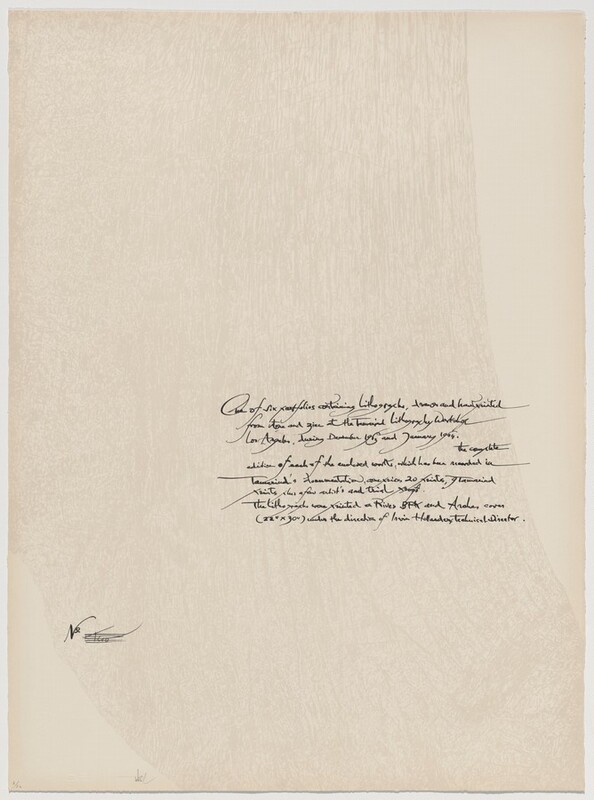 One of six portfolios containing lithographs, drawn and handprinted
from stone and zinc at the Tamarind Lithography Workshop
Los Angeles, during December 1965 and January 1966.
the complete
edition of each of the enclosed works, which has been recorded in
Tamarind's documentation, comprises 20 prints, 9 Tamarind
prints, plus a few artist's and trial proofs.
The lithographs were printed on Rives BFK and Arches cover
(22" x 30") under the direction of Irwin Hollander, Technical Director.
No